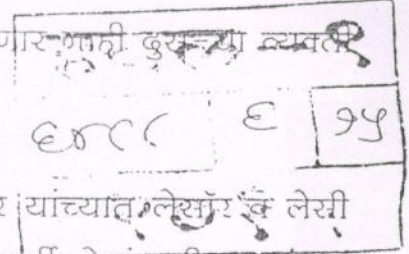 णार नाही दुसऱ्या व्यक्ती
६४८८ ६ १५
र यांच्यात लेसॉर व लेसी